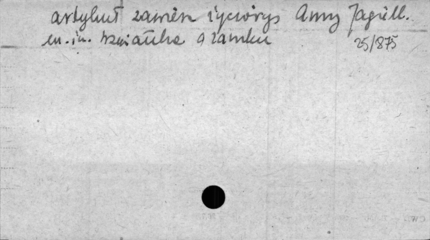 artykuł zamēn życiorys Anny Jagiell.
m.in. wzmianka o zamku 25/875